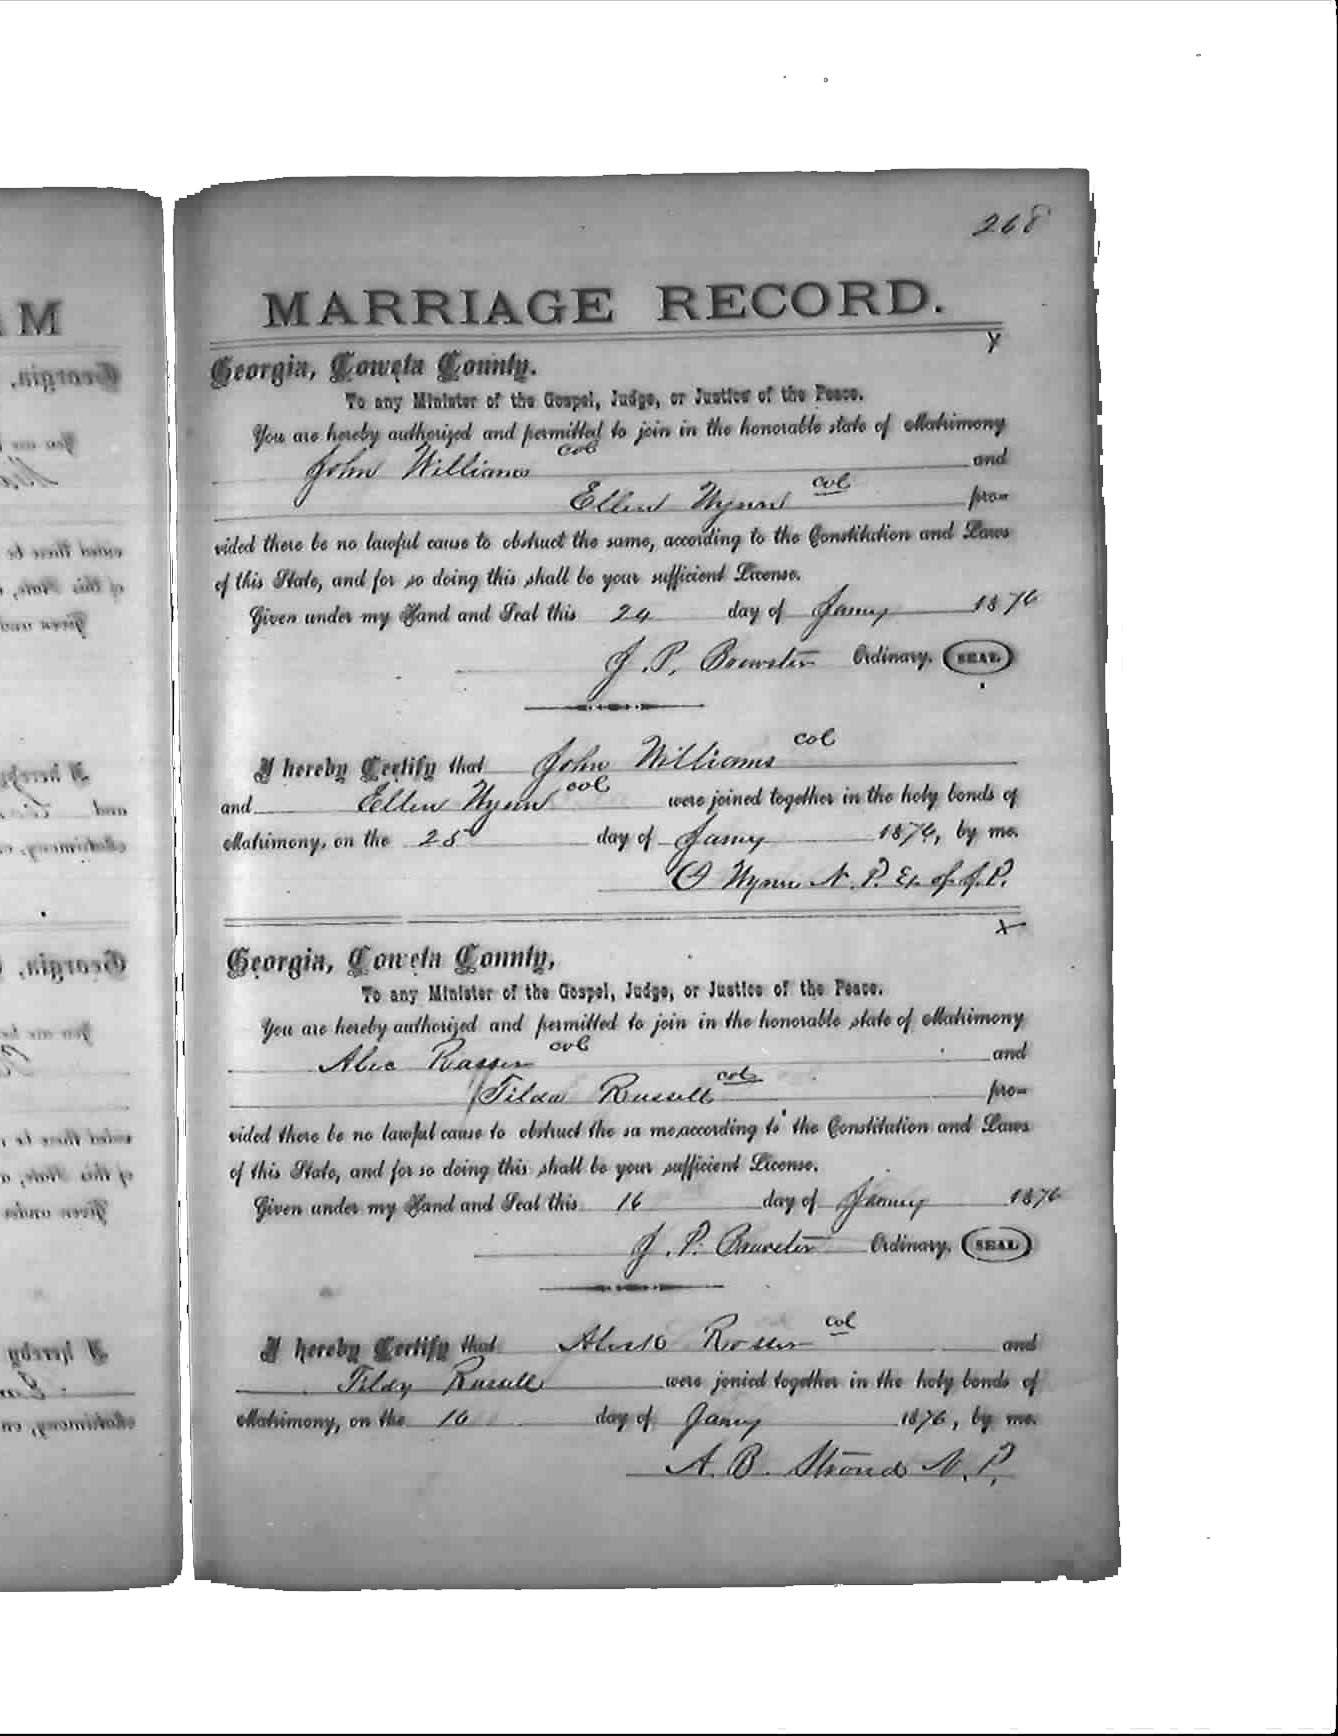 268
MARRIAGE RECORD.
Georgia, Coweta County.
To any Minister of the Gospel, Judge, or Justice of the Peace.
You are hereby authorized and permitted to join in the honorable state of Matrimony
John Williams col and
Ellen Wynn col pro-
vided there be no lawful cause to obstruct the same, according to the Constitution and Laws
of this State, and for so doing this shall be your sufficient License.
Given under my Hand and Seal this 24 day of Jany 1876
J. P. Brewster Ordinary. SEAL
I hereby Certify that John Williams col
and Ellen Wynn col were joined together in the holy bonds of
Matrimony, on the 25 day of Jany 1876, by me.
Wynn N. P. Ex. of. J. P.
Georgia, Coweta County,
To any Minister of the Gospel, Judge, or Justice of the Peace.
You are hereby authorized and permitted to join in the honorable state of Matrimony
Alec Rosser col and
Tilda Russell col pro-
vided there be no lawful cause to obstruct the sa me,according to the Constitution and Laws
of this State, and for so doing this shall be your sufficient License.
Given under my Hand and Seal this 16 day of Jany 1876
J. P. Brewster Ordinary. SEAL
I hereby Certify that Rosser col and
Tildy Russell were jonied together in the holy bonds of
Matrimony, on the 16 day of Jany 1876, by me.
A. B. Stroud N. P.